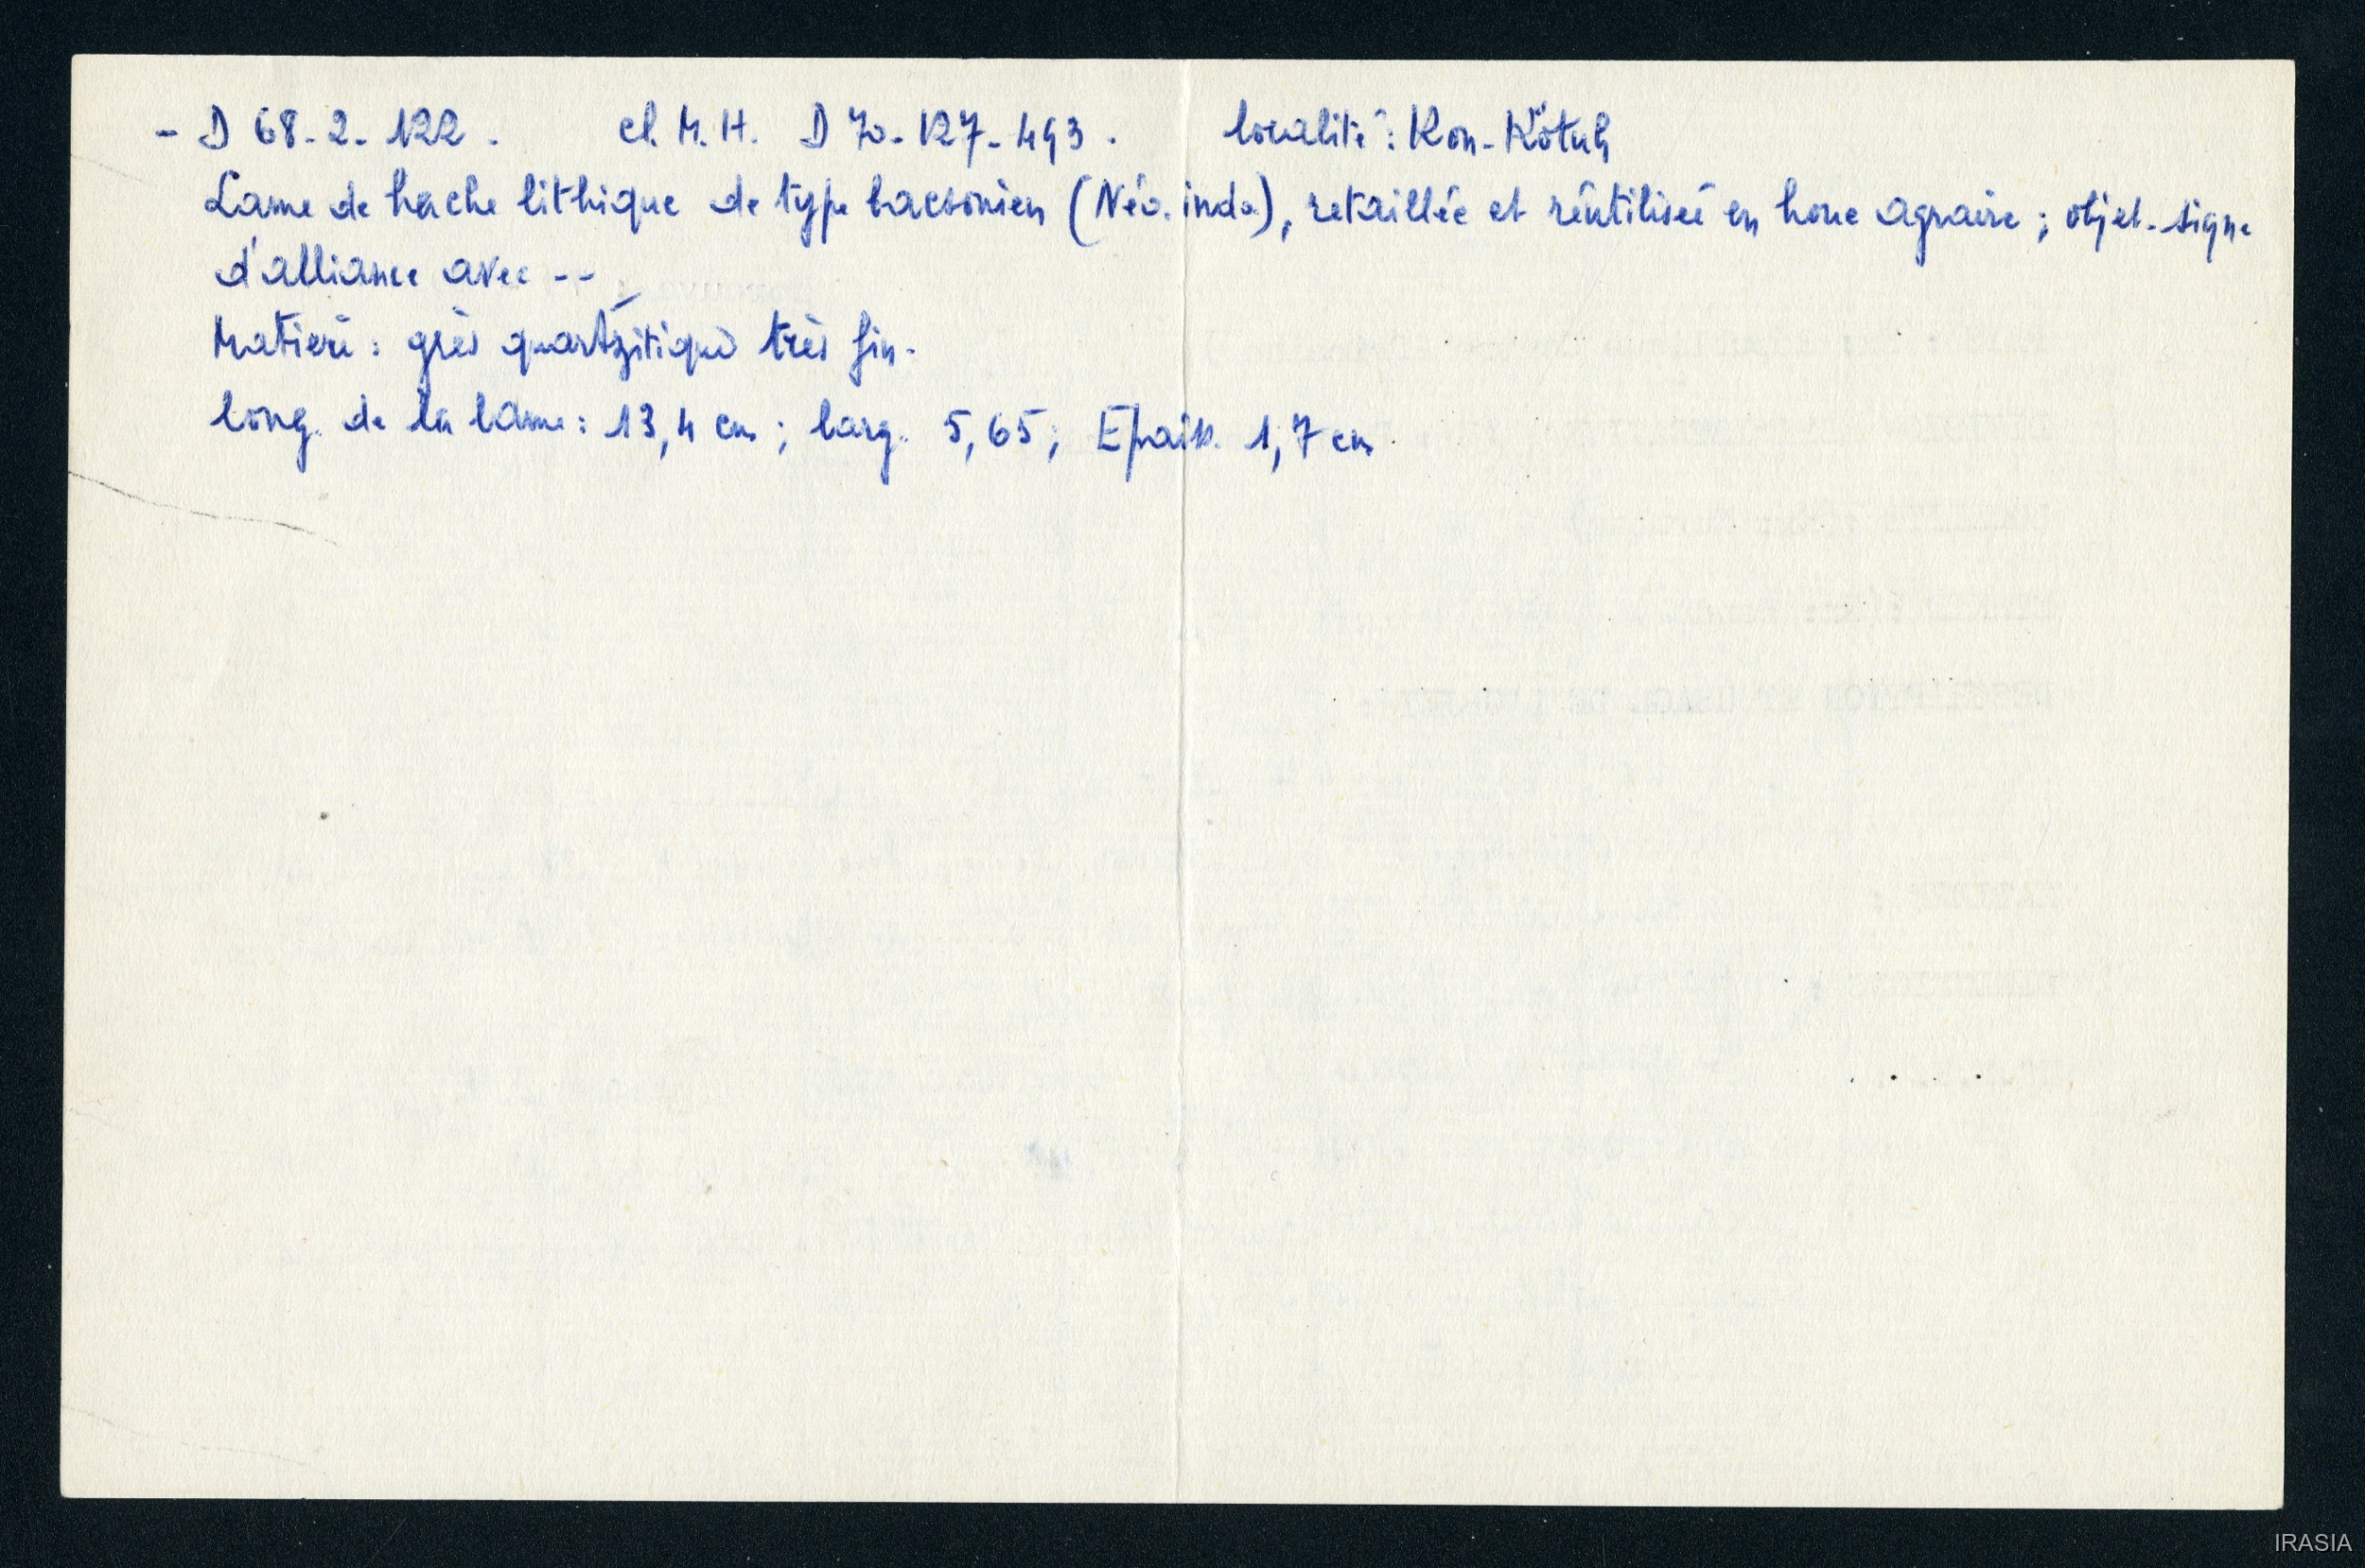 - D 68-2-122. cl. M.H. D 70-127-493. localité : Kon-Kötuh
Lame de hache lithique de type bacsonien (Néo. indo.), retaillée et réutilisée en houe agraire ; objet-signe
d'alliance avec --
Matière : grès quartzitique très fin.
long. de la lame : 13,4 cm ; larg. 5,65 ; Epaiss. 1,7 cm
IRASIA